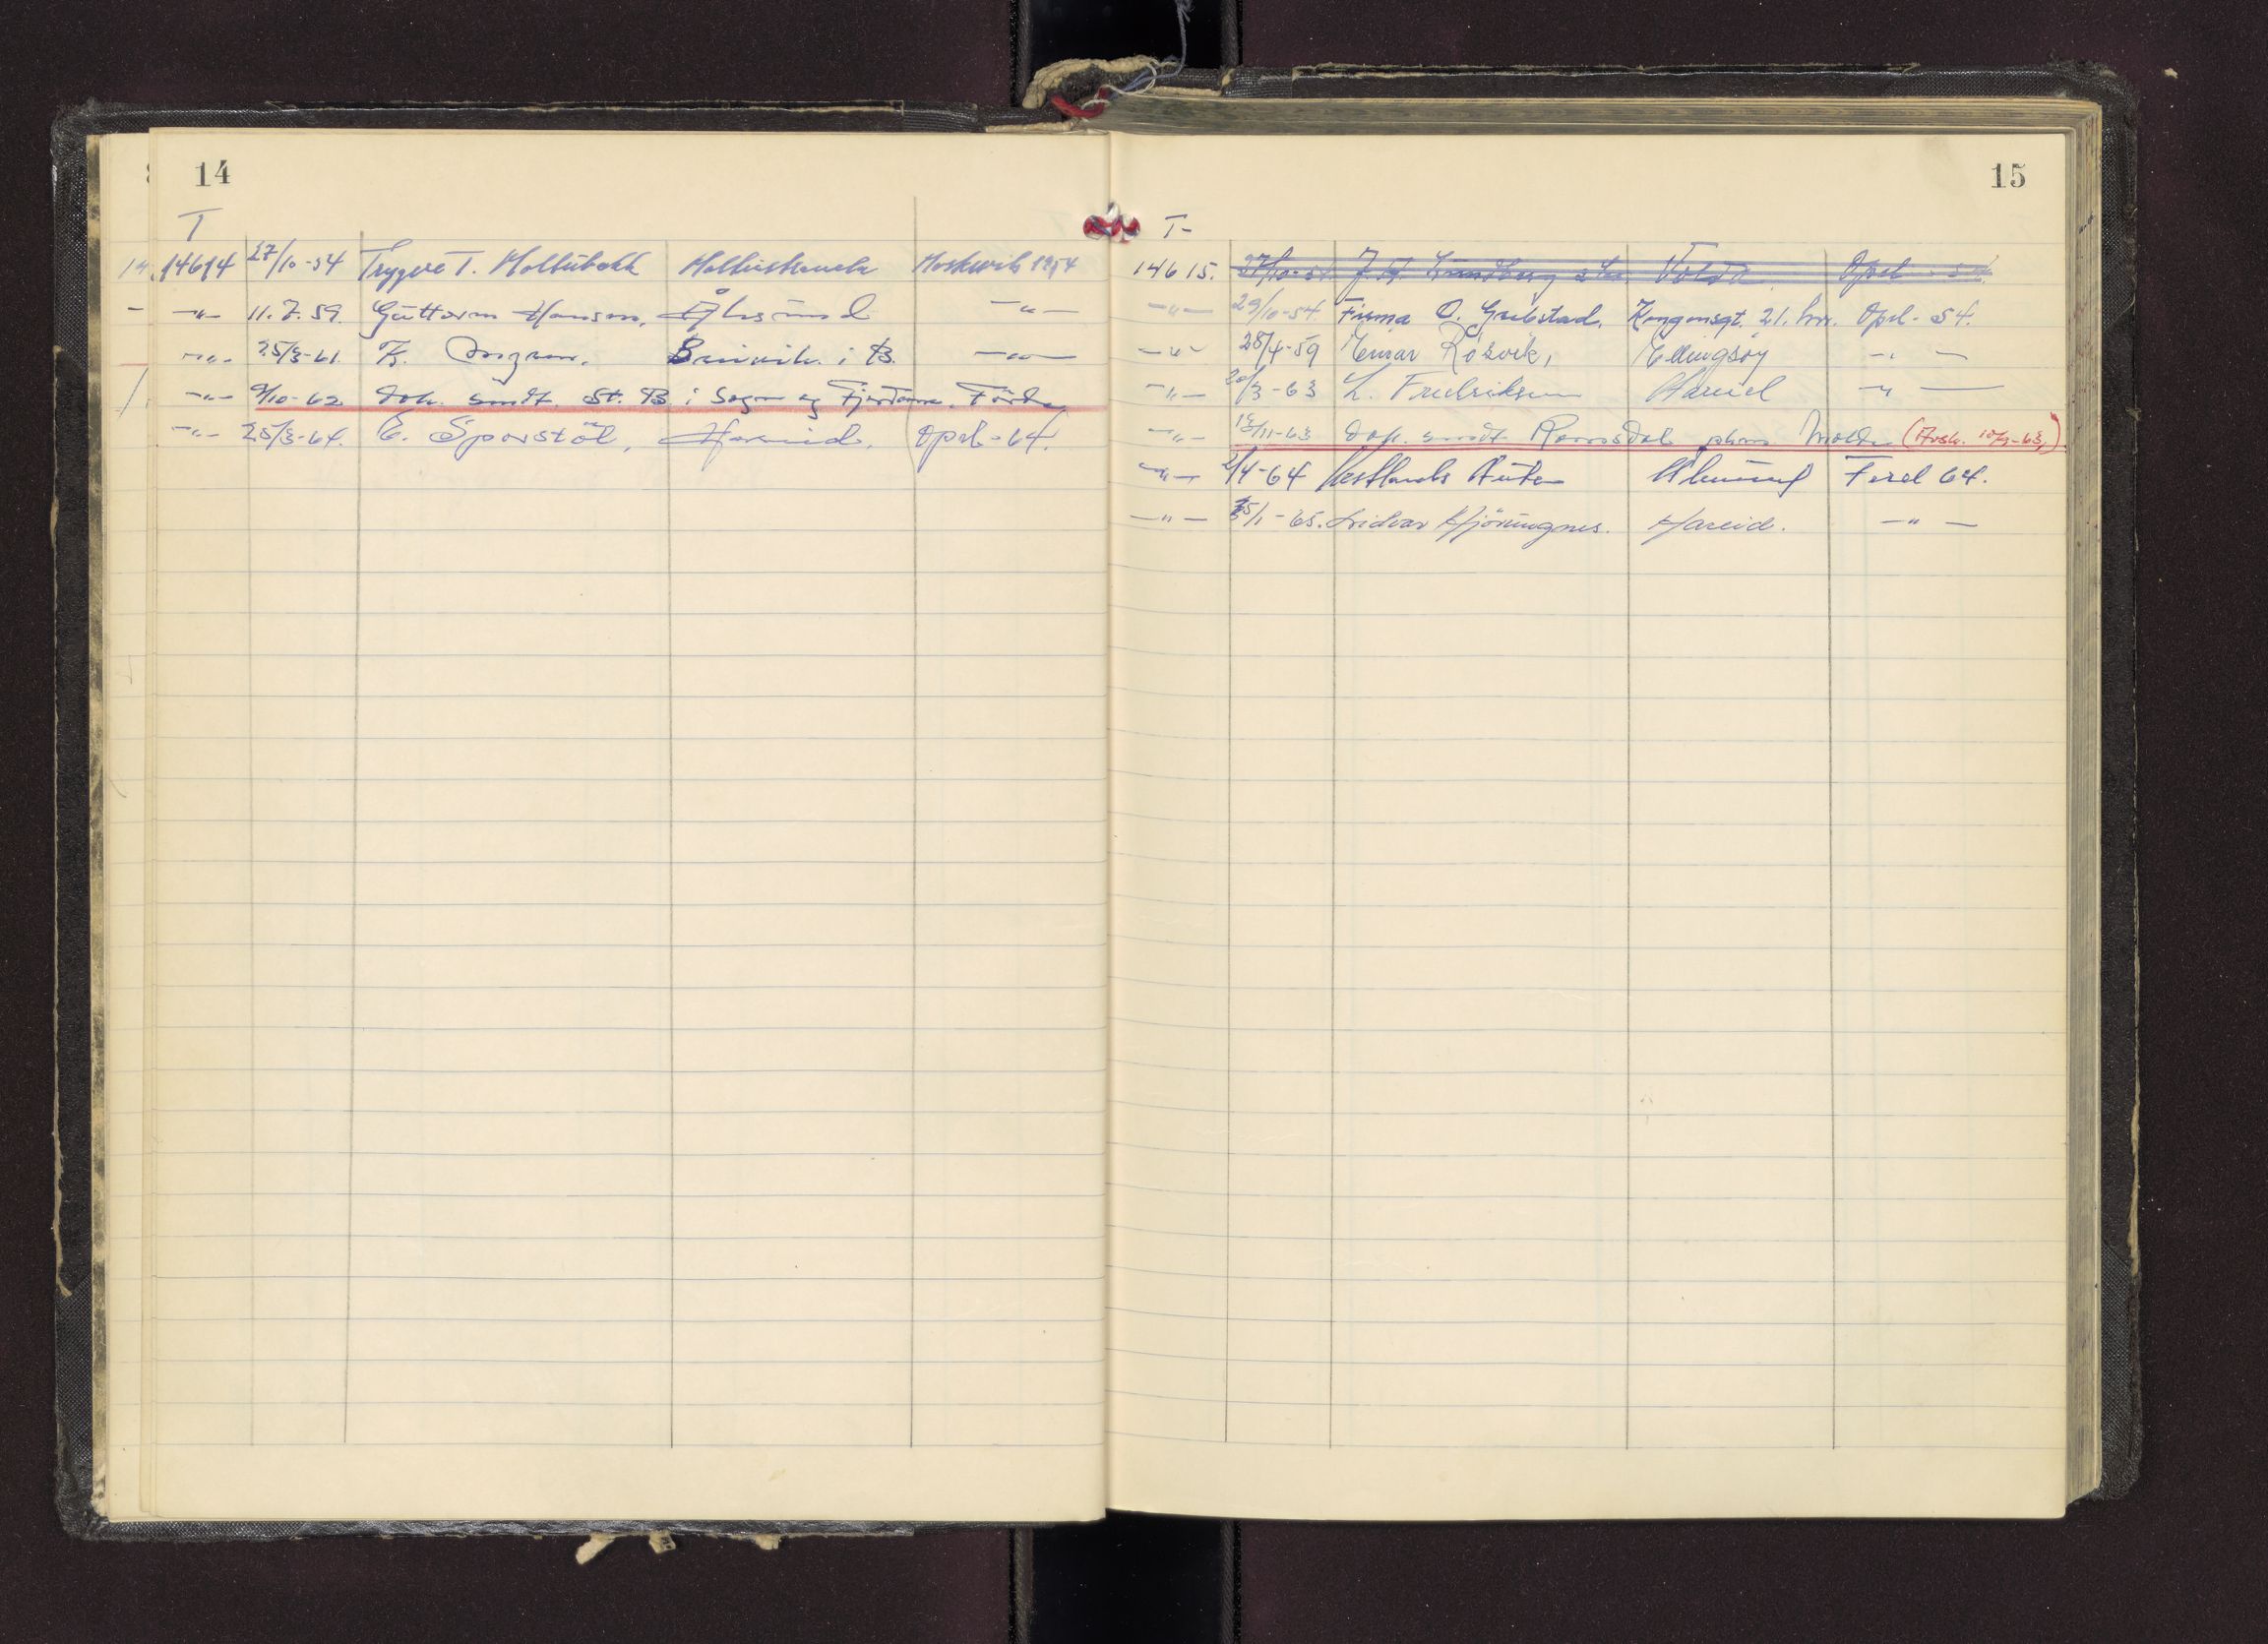 14
T
14614 27/10-54 Trygve T. Moltubakk Moltustranda Moskwih 1954
-"- 11.7.59. Guttorm Hansen, Ålesund -"-
-"- 25/3-61. K. i B. -"-
-"- 9/10-62 Dok. sendt. St. B. i Sogn og Fjordane, Förde
-"- 25/3-64. E. Sporstöl, Hareid, Opel-64.
15
T-
14615. 27/10-54 Volda Opel - 54.
-"- 29/10-54. Firma O. Grebstad, Kongensgt. 21. hvr. Opel- 54.
-"- 28/4-59 Einar Rösvik, Ellingsöy -"-
-"- 20/3-63 L. Fredriksen Hareid -"-
-"- 13/11-63 Dok. sendt Romsdal Molde (Avsk. 10/9-63,)
-"- 2/4-64 Vestlands Auto Ålesund Ford 64.
-"- 25/1-65. Lidvar Hjörungnes. Hareid. -"-